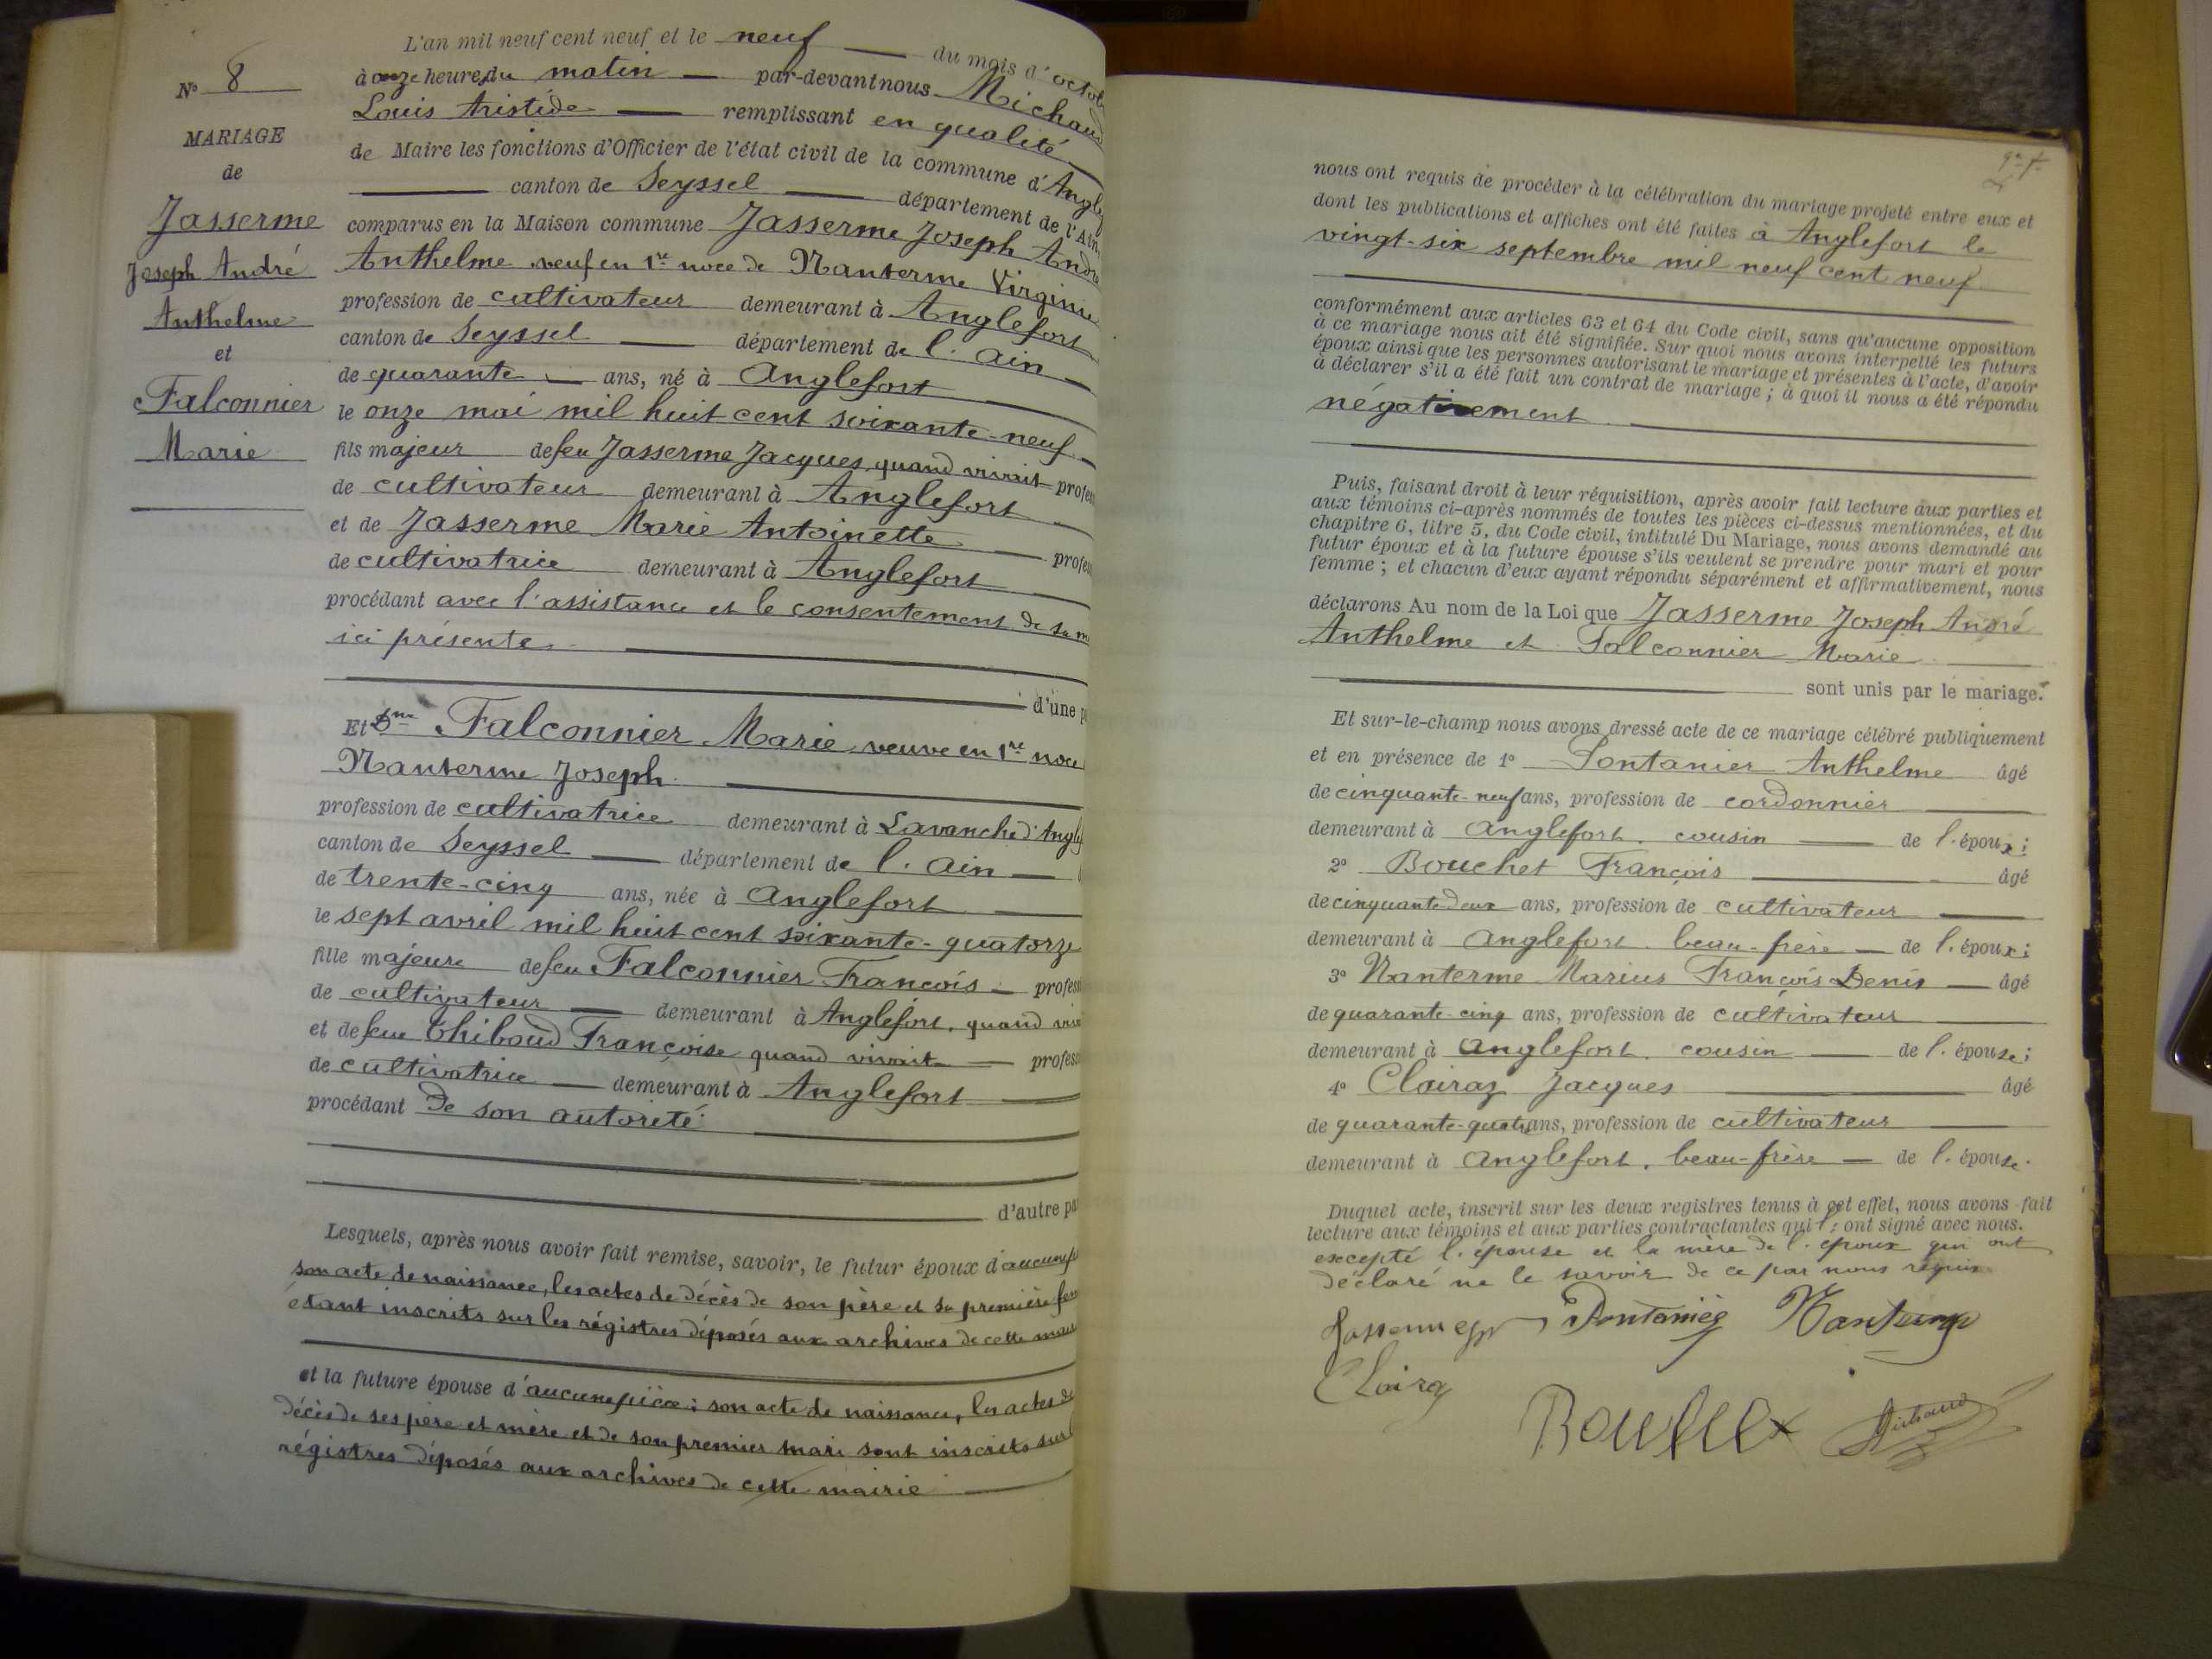 L'an mil neuf cent neuf et le neuf du mois d'octob
N° 8
à onze heures du matin par-devant nous Michaud
Louis Aristide remplissant en qualité
MARIAGE
de Maire les fonctions d'Officier de l'état civil de la commune d'Angle
de
canton de Seyssel département de l'Ain
Jasserme
comparus en la Maison commune Jasserme Joseph André
Joseph André
Anthelme veuf en 1re noce de Nanterme Virginie
Anthelme
profession de cultivateur demeurant à Anglefort
et
canton de Seyssel département de l'Ain
Falconnier
de quarante ans, né à Anglefort
Marie
le onze mai mil huit cent soixante-neuf
fils majeur de feu Jasserme Jacques quand vivait profes
de cultivateur demeurant à Anglefort
et de Jasserme Marie Antoinette profes
de cultivatrice demeurant à Anglefort
procédant avec l'assistance et le consentement de sa m
ici présente
d'une p
Et Dme Falconnier Marie veuve en 1re noce
Nanterme Joseph
profession de cultivatrice demeurant à Lavanche d'Angle
canton de Seyssel département de l'Ain
de trente-cinq ans, née à Anglefort
le sept avril mil huit cent soixante-quatorze
fille majeure de feu Falconnier François profess
de cultivateur demeurant à Anglefort, quand viv
et de feue Thiboud Françoise quand vivait profess
de cultivatrice demeurant à Anglefort
procédant de son autorité
d'autre pa
Lesquels, après nous avoir fait remise, savoir, le futur époux d'aucune
son acte de naissance, les actes de décès de son père et sa première fem
étant inscrits sur les régistres déposés aux archives de cette mair
et la future épouse d'aucune pièce; son acte de naissance, les actes de
décès de ses père et mère et de son premier mari sont inscrits sur
régistres déposés aux archives de cette mairie
nous ont requis de procéder à la célébration du mariage projeté entre eux et
dont les publications et affiches ont été faites à Anglefort le
vingt-six septembre mil neuf cent neuf
conformément aux articles 63 et 64 du Code civil, sans qu'aucune opposition
à ce mariage nous ait été signifiée. Sur quoi nous avons interpellé les futurs
époux ainsi que les personnes autorisant le mariage et présentes à l'acte, d'avoir
à déclarer s'il a été fait un contrat de mariage; à quoi il nous a été répondu
négativement
Puis, faisant droit à leur réquisition, après avoir fait lecture aux parties et
aux témoins ci-après nommés de toutes les pièces ci-dessus mentionnées, et du
chapitre 6, titre 5, du Code civil, intitulé Du Mariage, nous avons demandé au
futur époux et à la future épouse s'ils veulent se prendre pour mari et pour
femme; et chacun d'eux ayant répondu séparément et affirmativement, nous
déclarons Au nom de la Loi que Jasserme Joseph André
Anthelme et Falconnier Marie
sont unis par le mariage.
Et sur-le-champ nous avons dressé acte de ce mariage célébré publiquement
et en présence de 1° Fontanier Anthelme âgé
de cinquante-neuf ans, profession de cordonnier
demeurant à Anglefort. cousin de l'époux;
2° Bouchet François âgé
de cinquante deux ans, profession de cultivateur
demeurant à Anglefort. beau-frère de l'époux;
3° Nanterme Marius François Denis âgé
de quarante-cinq ans, profession de cultivateur
demeurant à Anglefort. cousin de l'épouse;
4° Clairaz Jacques âgé
de quarante-quatre ans, profession de cultivateur
demeurant à Anglefort. beau-frère de l'épouse.
Duquel acte, inscrit sur les deux registres tenus à cet effet, nous avons fait
lecture aux témoins et aux parties contractantes qui l'ont signé avec nous.
excepté l'épouse et la mère de l'époux qui ont
déclaré ne le savoir de ce par nous requis
Jasserme Fontanier Nanterme
Claira
Michaud